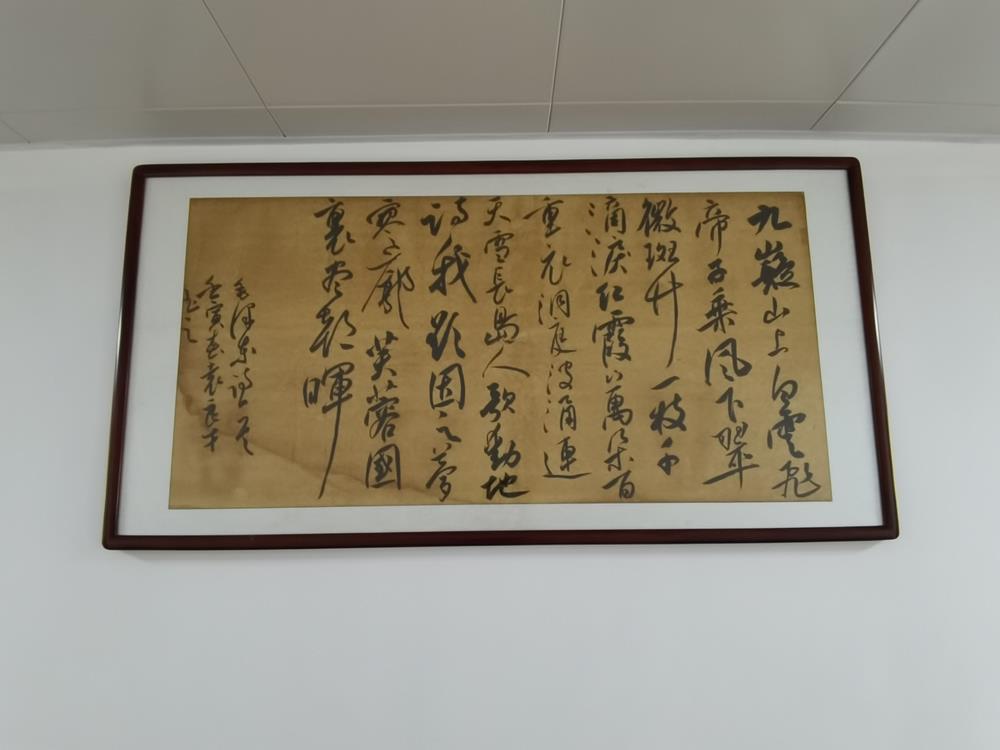 九嶷山上白雲飛
帝子乘風下翠
微斑竹一枝千
滴淚红霞萬朵百
重衣洞庭波涌連
天雪長島人歌動地
詩我欲因之夢
寥廓芙蓉國
裏尽朝暉
毛澤東詩一首
壬寅春袁良才